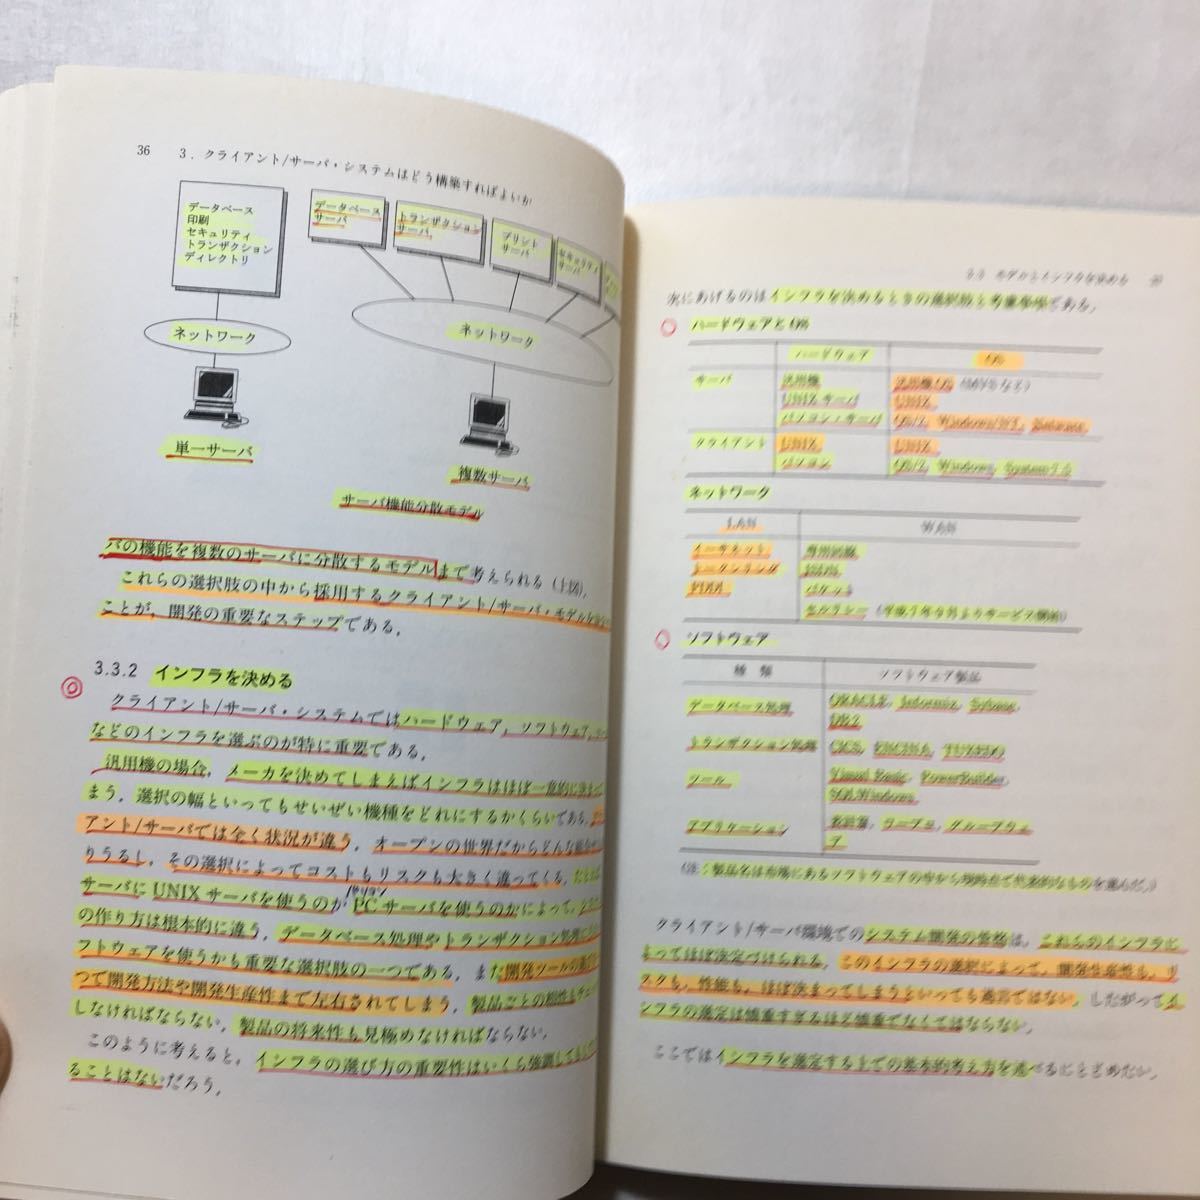 36　3．クライアント/サーバ・システムはどう構築すればよいか
データベース
印刷
セキュリティ
トランザクション
ディレクトリ
ネットワーク
単一サーバ
データベース
サーバ
トランザクション
サーバ
プリント
サーバ
セキュリティ
サーバ
ネットワーク
複数サーバ
サーバ機能分散モデル
バの機能を複数のサーバに分散するモデルまで考えられる（上図）．
これらの選択肢の中から採用するクライアント/サーバ・モデルを
ことが，開発の重要なステップである．
3.3.2 インフラを決める
クライアント/サーバ・システムではハードウェア，ソフトウェア，
などのインフラを選ぶのが特に重要である．
汎用機の場合，メーカを決めてしまえばインフラはほぼ一義的に決まって
まう．選択の幅といってもせいぜい機種をどれにするかくらいである．
アント/サーバでは全く状況が違う．オープンの世界だからどんな
りうるし，その選択によってコストもリスクも大きく違ってくる．たとえば
パソコン
サーバに UNIX サーバを使うのか PC サーバを使うのかによって，
の作り方は根本的に違う．データベース処理やトランザクション処理に
フトウェアを使うかも重要な選択肢の一つである．また開発ツールの
つで開発方法や開発生産性まで左右されてしまう．製品ごとの相性も
しなければならない．製品の将来性も見極めなければならない．
このように考えると，インフラの選び方の重要性はいくら強調しても
ることはないだろう．
3.3 モデルとインフラを決める
次にあげるのはインフラを決めるときの選択肢と考慮事項である．
ハードウェアと OS
ハードウェア　OS
サーバ　汎用機　汎用機 OS（MVS など）
UNIX サーバ　UNIX
パソコン・サーバ　OS/2, Windows/NT, Netware
クライアント　UNIX　UNIX
パソコン　OS/2, Windows, System7.5
ネットワーク
LAN　WAN
イーサネット　専用回線
トークンリング　ISDN
FDDI　パケット
セルリレー（平成7年9月よりサービス開始）
ソフトウェア
種 類　ソフトウェア製品
データベース処理　ORACLE, Informix, Sybase,
DB2
トランザクション処理　CICS, ENCINA, TUXEDO
ツール　Visual Basic, PowerBuilder,
SQLWindows
アプリケーション　表計算，ワープロ，グループウェ
ア
（注：製品名は市場にあるソフトウェアの中から現時点で代表的なものを選んだ．）
クライアント/サーバ環境でのシステム開発の性格は，これらのインフラに
よってほぼ決定づけられる．このインフラの選択によって，開発生産性も，リ
スクも，性能も，ほぼ決まってしまうといっても過言ではない．したがってイ
ンフラの選定は慎重すぎるほど慎重でなくてはならない．
ここではインフラを選定する上での基本的考え方を述べるにとどめたい．